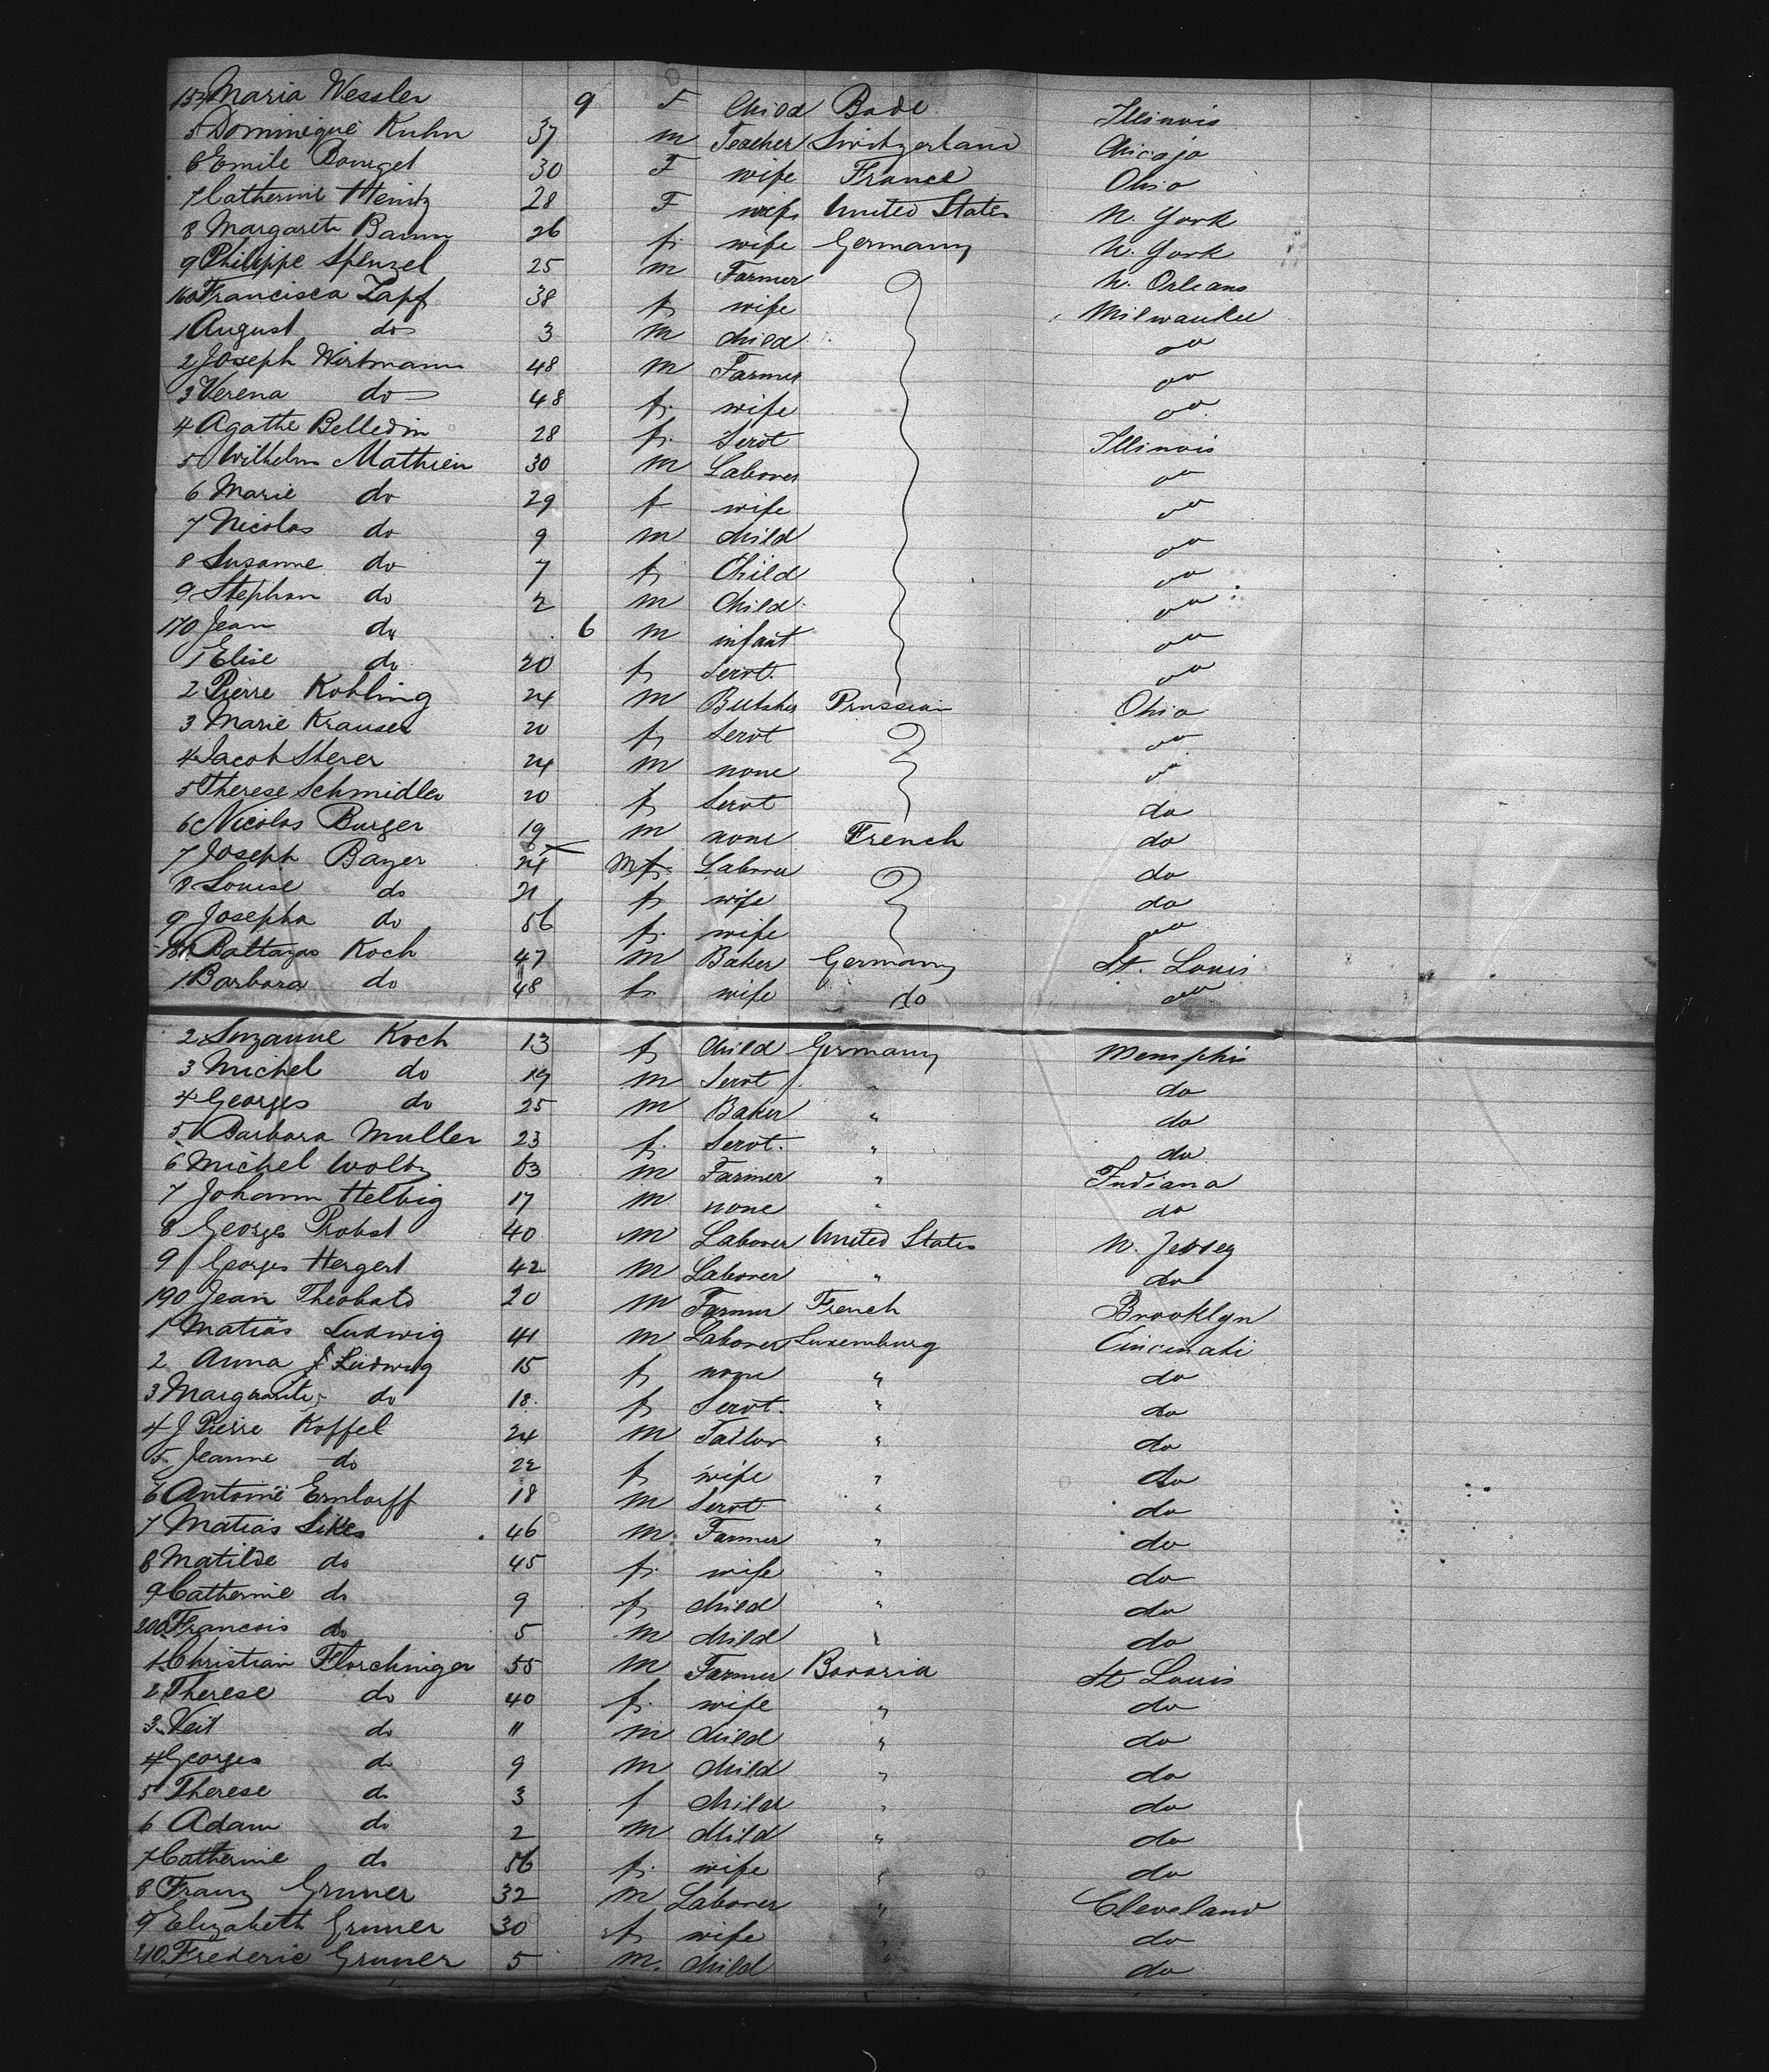 154 Maria Wessler 9 F Child Bade Illinois
5 Dominique Kuhn 37 m Teacher Switzerland Chicajo
6 Emile Bourget 30 F wife France Ohio
7 Catherine Heintz 28 F wife United States N. York
8 Margareth Baum 26 f. wife Germany N. York
9 Philippe Spenzel 25 m Farmer N. Orleans
160 Francisca Zapf 38 f wife Milwaukee
1 August do 3 m child do
2 Joseph Wirtmann 48 m Farmer do
3 Verena do 48 f. wife do
4 Agathe Belledin 28 f. Servt Illinois
5 Wilhelm Mathieu 30 m Laborer do
6 Marie do 29 f wife do
7 Nicolas do 9 m child do
8 Susanne do 7 f Child do
9 Stephan do 2 m Child do
170 Jean do 6 m infant do
1 Elise do 20 f Servt. do
2 Pierre Kohling 24 m Butcher Prussian Ohio
3 Marie Krauser 20 f Servt do
4 Jacob Sterer 24 m none do
5 Therese Schmidler 20 f Servt do
6 Nicolas Burger 19 m none French do
7 Joseph Bayer 24 m Laborer do
8 Louise do 21 f wife do
9 Josepha do 56 f. wife do
180 Baltazar Koch 47 m Baker Germany St. Louis
1 Barbara do 48 f. wife do do
2 Suzanne Koch 13 f Child Germany Memphis
3 Michel do 19 m Servt " do
4 Georges do 25 m Baker " do
5 Barbara Muller 23 f. Servt. " do
6 Michel Woltz 63 m Farmer " Indiana
7 Johann Helbig 17 m none " do
8 Georges Probst 40 m Laborer United States N. Jersey
9 Georges Hergert 42 m Laborer " do
190 Jean Theobald 20 m Farmer French Brooklyn
1 Matias Ludwig 41 m Laborer Luxemburg Cincinati
2 Anna Ludwig 15 f none " do
3 Marguerite do 18. f Servt. " do
4 J Pierre Koffel 24 m Tailor " do
5 Jeanne do 22 f wife " do
6 Antoine Erndorff 18 m Servt " do
7 Matias Sikes 46 m Farmer " do
8 Matilde do 45 f. wife " do
9 Catherine do 9 f child " do
200 Francois do 5 m child " do
1 Christian Florchniger 55 m Farmer Bavaria St Louis
2 Therese do 40 f. wife " do
3 Veit do 11 m child " do
4 Georges do 9 m child " do
5 Therese do 3 f child " do
6 Adam do 2 m child " do
7 Catherine do 56 f. wife " do
8 Franz Gruner 32 m Laborer " Cleveland
9 Elizabeth Gruner 30 f wife " do
210 Frederic Gruner 5 m. child " do